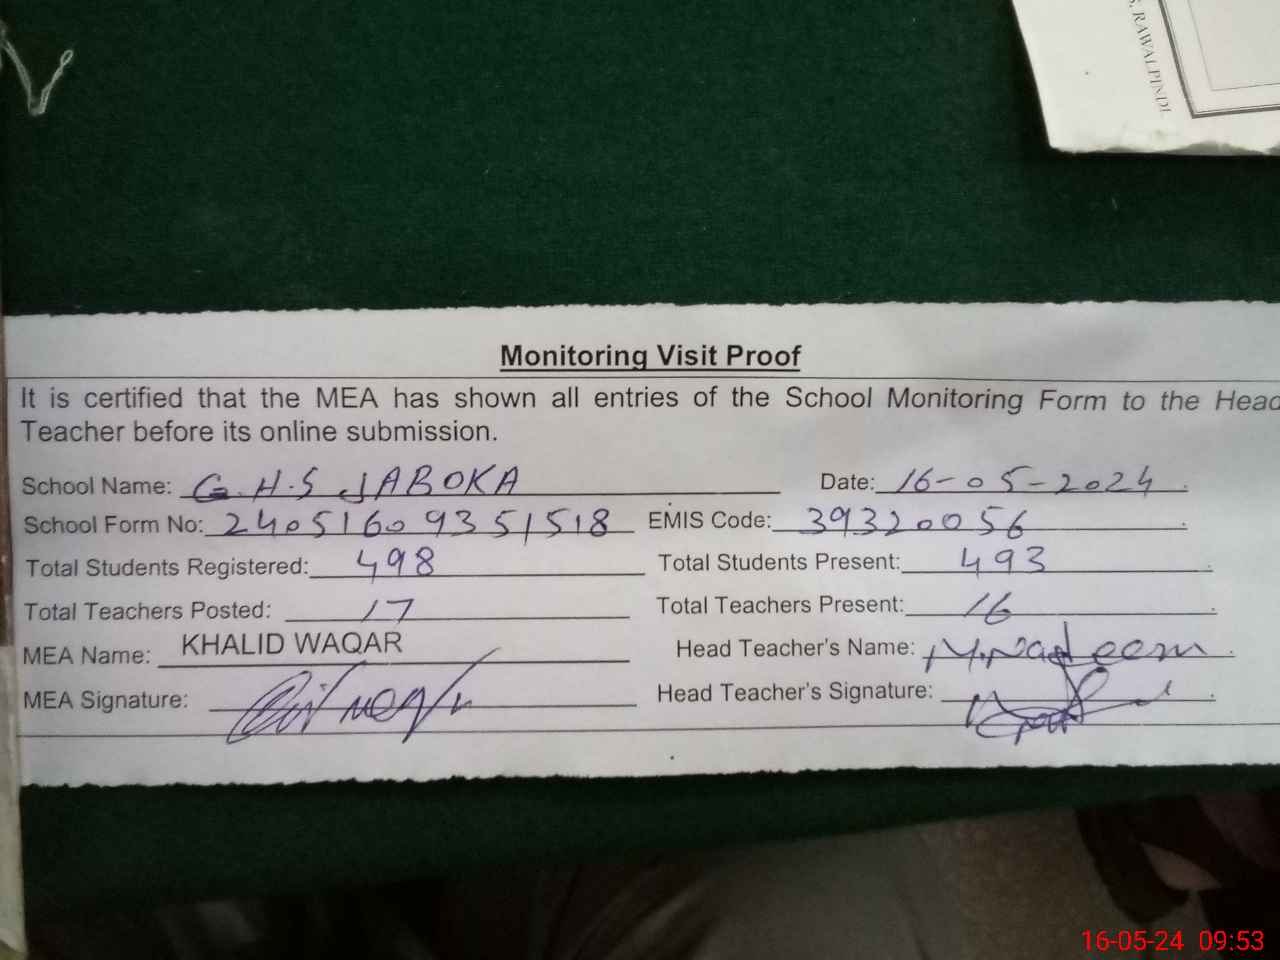 S, RAWALPINDI
Monitoring Visit Proof
It is certified that the MEA has shown all entries of the School Monitoring Form to the Head
Teacher before its online submission.
School Name: G.H.S JABOKA Date: 16-05-2024
School Form No: 24051609351518 EMIS Code: 39320056
Total Students Registered: 498 Total Students Present: 493
Total Teachers Posted: 17 Total Teachers Present: 16
MEA Name: KHALID WAQAR Head Teacher's Name: M.Nadeem
MEA Signature: Head Teacher's Signature:
16-05-24 09:53